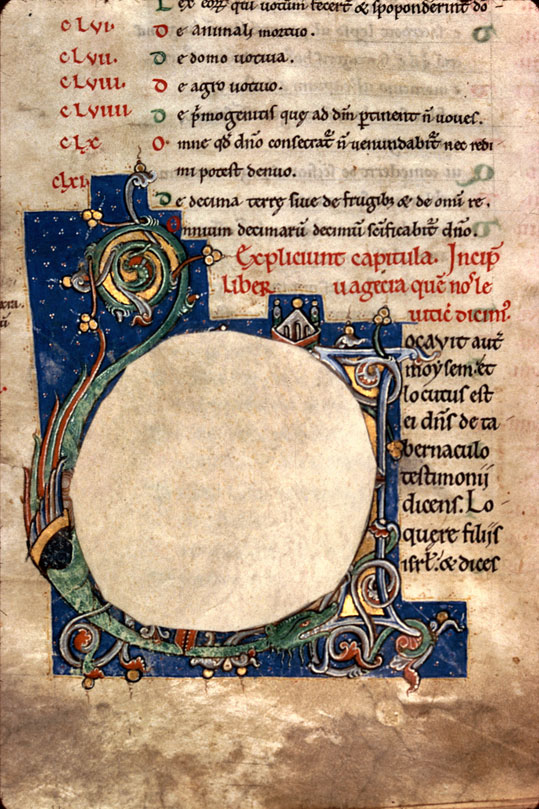 Lex eoꝝ qui uotum fecerīt & spoponderint do
clvi. De animali mortuo.
clvii. De domo uotiua.
clviii. De agro uotiuo.
clviiii De p̄mogenitis que ad dn̄m ꝑtinent n̄ uoues.
clx Omne qd̄ dn̄o consecrat̄ n̄ uenundabit̄ nec redi
mi potest denuo.
clxi. De decima terre siue de frugibꝫ & de omī re.
Omnium decimarū decimū sc̄ificabit̄ dn̄o.
Expliciunt capitula. Incip̄
liber uagecra quē nos le
uiticū dicim⁹.
Uocauit aut̄
moysem et
locutus est
ei dn̄s de ta
bernaculo
testimonij
dicens. Lo
quere filijs
isrl̄. & dices